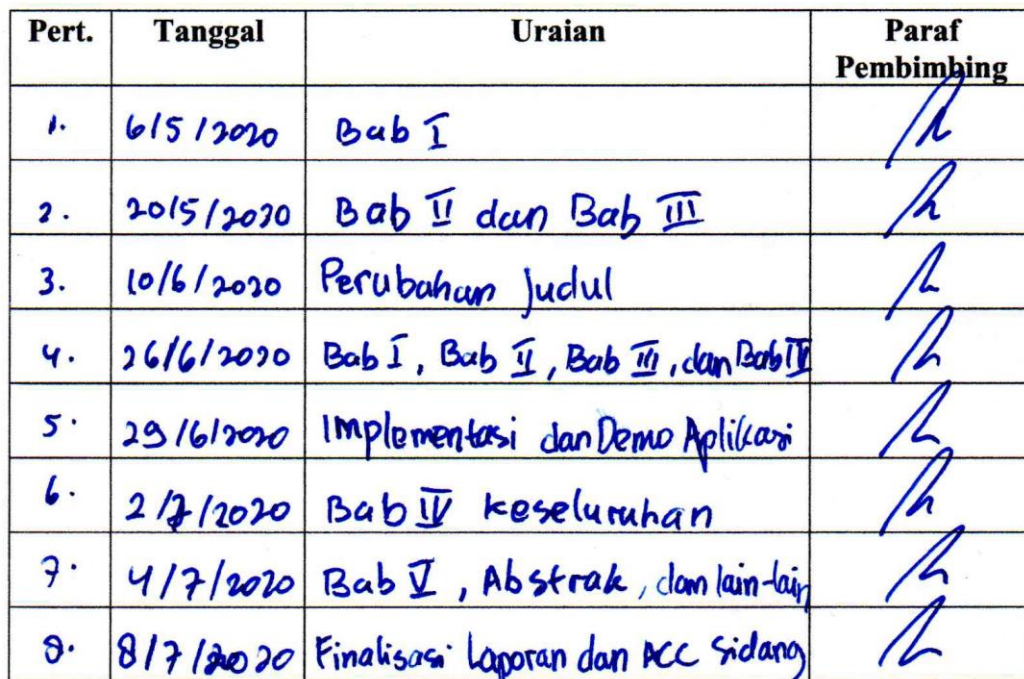 Pert. Tanggal Uraian Paraf
Pembimbing
1. 6/5/2020 Bab I
2. 20/5/2020 Bab II dan Bab III
3. 10/6/2020 Perubahan Judul
4. 26/6/2020 Bab I, Bab II, Bab III, dan Bab IV
5. 29/6/2020 Implementasi dan Demo Aplikasi
6. 2/7/2020 Bab IV Keseluruhan
7. 4/7/2020 Bab V, Abstrak, dan lain-lain
8. 8/7/2020 Finalisasi Laporan dan ACC Sidang